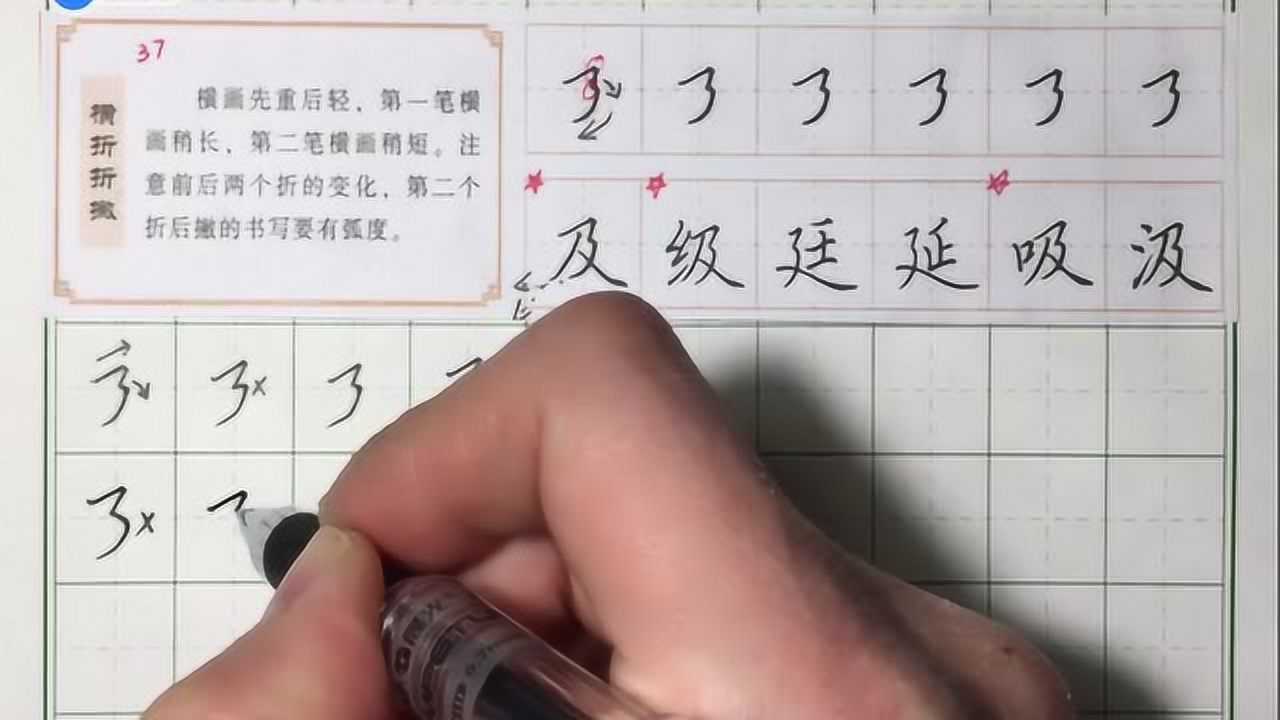 37
横折折撇
横画先重后轻，第一笔横
画稍长，第二笔横画稍短。注
意前后两个折的变化，第二个
折后撇的书写要有弧度。
及 级 廷 延 吸 汲